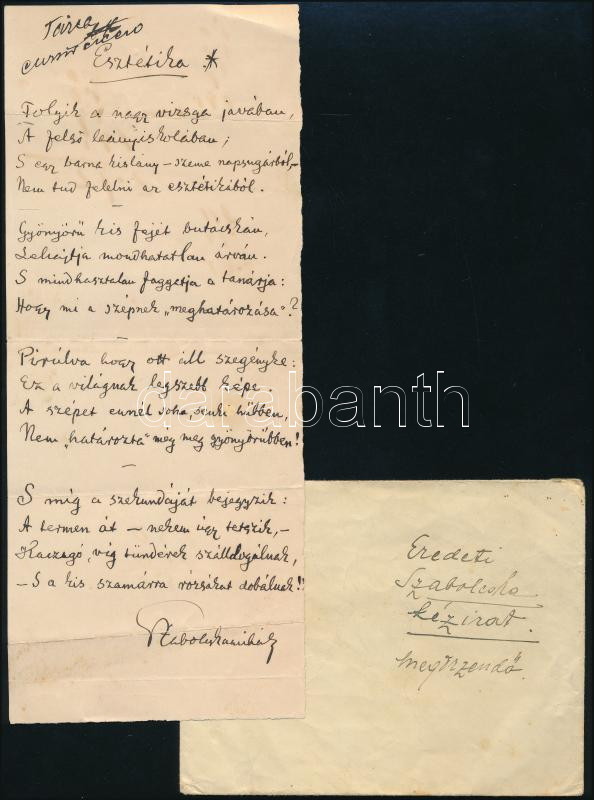 Tárca
Esztétika *
Folyik a nagy vizsga javában,
A felső leányiskolában;
S egy barna kislány – szeme napsugárból, –
Nem tud felelni az esztétikából.
–
Gyönyörű kis fejét butácskán,
Lehajtja mondhatatlan árván.
S mindhasztalan faggatja a tanárja:
Hogy mi a szépnek „meghatározása"?
–
Pirúlva hogy ott áll szegényke:
Ez a világnak legszebb képe.
A szépet ennél soha, senki hűbben,
Nem „határozta" még meg gyönyörűbben!
–
S míg a szekundáját bejegyzik:
A termen át – nekem úgy tetszik, –
Kaczagó, víg tündérek szálldogálnak,
– S a kis szamárra rózsákat dobálnak!!
Szabolcskamihály
Eredeti
Szabolcska
kézirat.
megőrzendő.
darabanth